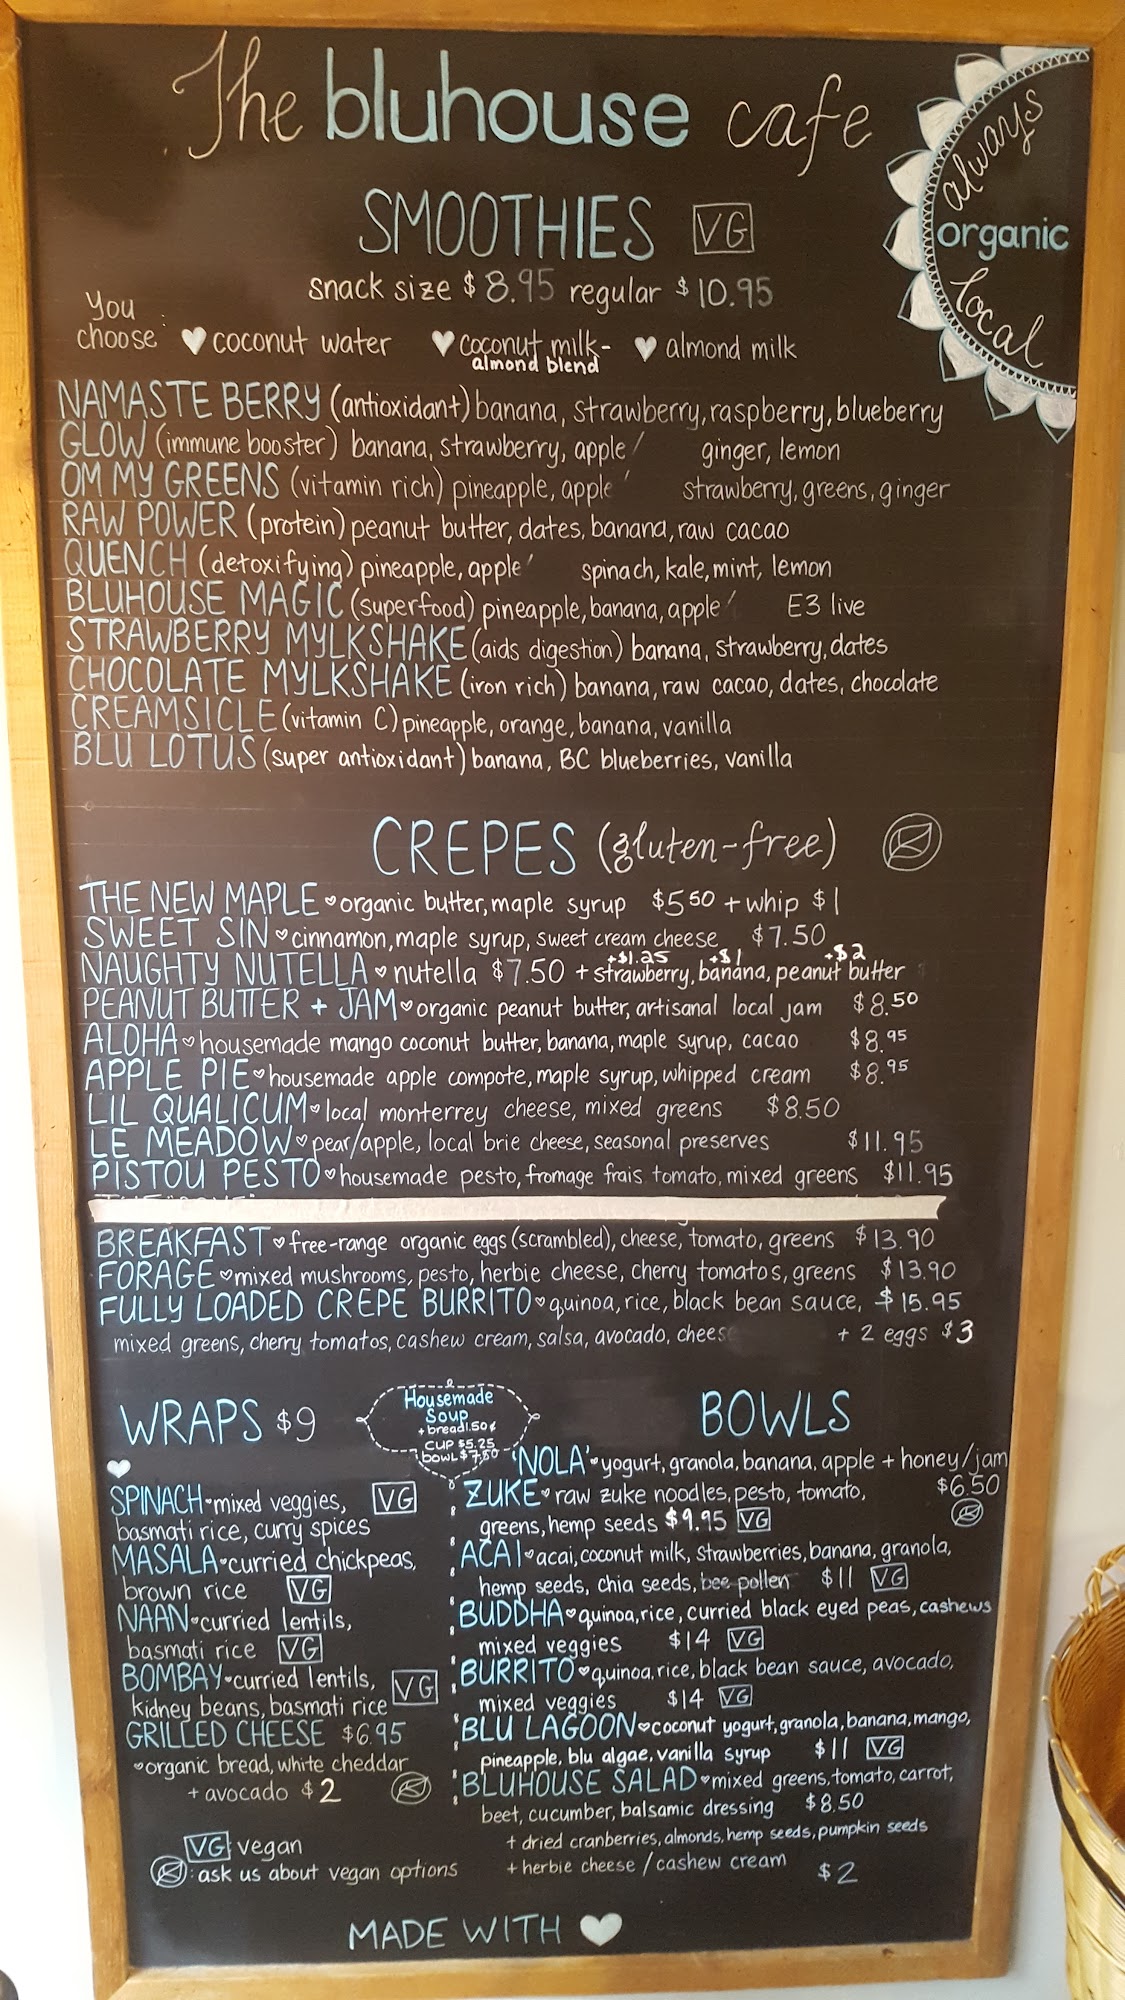 The bluhouse cafe
always
organic
local
SMOOTHIES VG
snack size $8.95 regular $10.95
You choose: ♥ coconut water ♥ coconut milk-almond blend ♥ almond milk
NAMASTE BERRY (antioxidant) banana, strawberry, raspberry, blueberry
GLOW (immune booster) banana, strawberry, apple ginger, lemon
OM MY GREENS (vitamin rich) pineapple, apple strawberry, greens, ginger
RAW POWER (protein) peanut butter, dates, banana, raw cacao
QUENCH (detoxifying) pineapple, apple spinach, kale, mint, lemon
BLUHOUSE MAGIC (superfood) pineapple, banana, apple E3 live
STRAWBERRY MYLKSHAKE (aids digestion) banana, strawberry, dates
CHOCOLATE MYLKSHAKE (iron rich) banana, raw cacao, dates, chocolate
CREAMSICLE (vitamin C) pineapple, orange, banana, vanilla
BLU LOTUS (super antioxidant) banana, BC blueberries, vanilla
CREPES (gluten-free)
THE NEW MAPLE ♥ organic butter, maple syrup $5.50 + whip $1
SWEET SIN ♥ cinnamon, maple syrup, sweet cream cheese $7.50
+$1.25 +$1 +$2
NAUGHTY NUTELLA ♥ nutella $7.50 + strawberry, banana, peanut butter
PEANUT BUTTER + JAM ♥ organic peanut butter, artisanal local jam $8.50
ALOHA ♥ housemade mango coconut butter, banana, maple syrup, cacao $8.95
APPLE PIE ♥ housemade apple compote, maple syrup, whipped cream $8.95
LIL QUALICUM ♥ local monterrey cheese, mixed greens $8.50
LE MEADOW ♥ pear/apple, local brie cheese, seasonal preserves $11.95
PISTOU PESTO ♥ housemade pesto, fromage frais, tomato, mixed greens $11.95
BREAKFAST ♥ free-range organic eggs (scrambled), cheese, tomato, greens $13.90
FORAGE ♥ mixed mushrooms, pesto, herbie cheese, cherry tomatos, greens $13.90
FULLY LOADED CREPE BURRITO ♥ quinoa, rice, black bean sauce, $15.95
mixed greens, cherry tomatos, cashew cream, salsa, avocado, cheese + 2 eggs $3
WRAPS $9
♥
SPINACH • mixed veggies, VG
basmati rice, curry spices
MASALA • curried chickpeas,
brown rice VG
NAAN • curried lentils,
basmati rice VG
BOMBAY • curried lentils, VG
kidney beans, basmati rice
GRILLED CHEESE $6.95
♥ organic bread, white cheddar
+ avocado $2
VG: vegan
: ask us about vegan options
Housemade
Soup
+ bread 1.50¢
CUP $5.25
BOWL $7.50
BOWLS
'NOLA' ♥ yogurt, granola, banana, apple + honey/jam
$6.50
ZUKE ♥ raw zuke noodles, pesto, tomato,
greens, hemp seeds $9.95 VG
ACAI ♥ acai, coconut milk, strawberries, banana, granola,
hemp seeds, chia seeds, bee pollen $11 VG
BUDDHA ♥ quinoa, rice, curried black eyed peas, cashews
mixed veggies $14 VG
BURRITO ♥ quinoa, rice, black bean sauce, avocado,
mixed veggies $14 VG
BLU LAGOON ♥ coconut yogurt, granola, banana, mango,
pineapple, blu algae, vanilla syrup $11 VG
BLUHOUSE SALAD ♥ mixed greens, tomato, carrot,
beet, cucumber, balsamic dressing $8.50
+ dried cranberries, almonds, hemp seeds, pumpkin seeds
+ herbie cheese / cashew cream $2
MADE WITH ♥